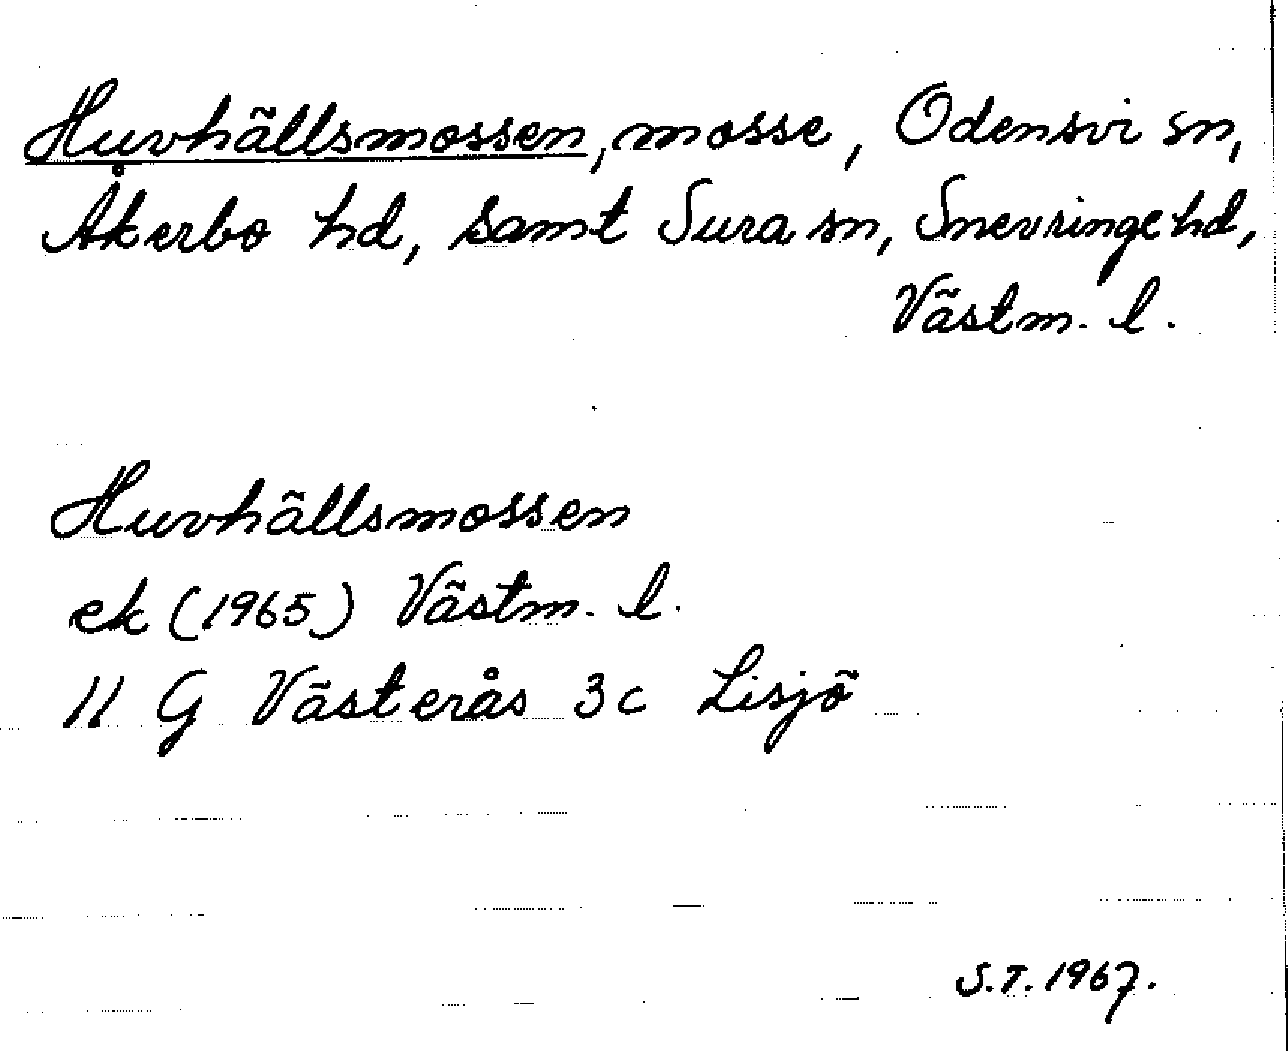 Huvhällsmossen, mosse, Odensvi sn,
Åkerbo hd, samt Sura sn, Snevringe hd,
Västm. l.
Huvhällsmossen
ek (1965) Västm. l.
11 G Västerås 3c Lisjö
S.T. 1967.